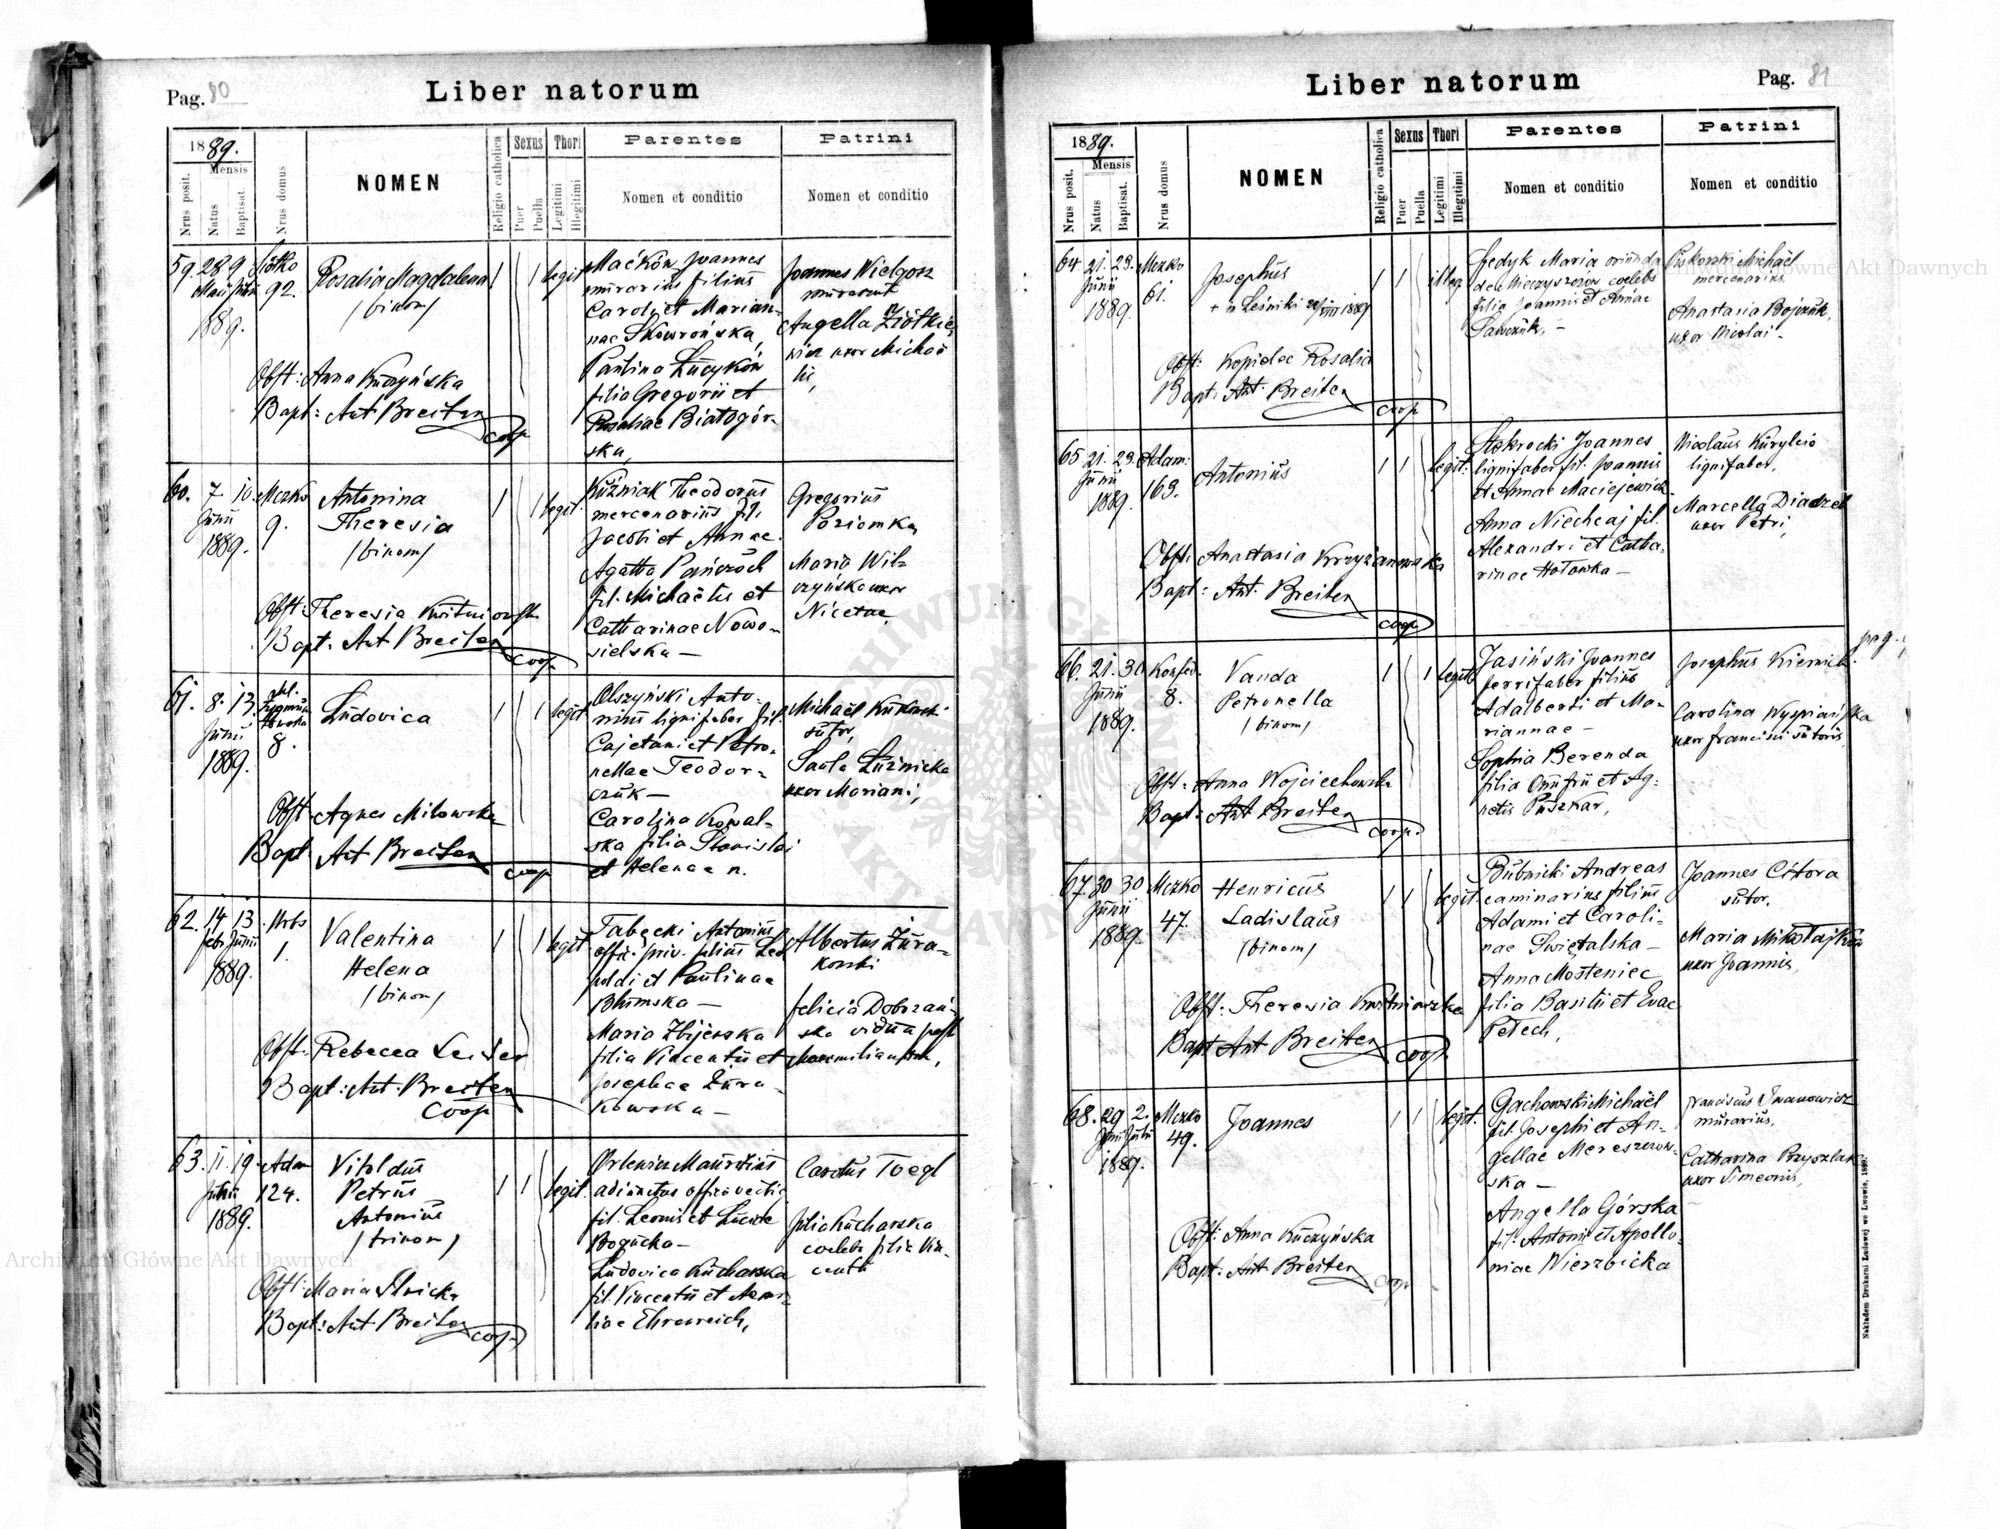 Pag. 80
Liber natorum
1889.
Mensis
Nrus posit.
Natus
Baptisat.
Nrus domus
NOMEN
Religio catholica
Sexus
Puer
Puella
Thori
Legitimi
Illegitimi
Parentes
Nomen et conditio
Patrini
Nomen et conditio
59. 28 9
1889.
92.
Rosalia Magdalena
/binom/
1 1 legit
Maćkow Joannes
murarius filius
Caroli et Marian-
nae Skowrońska,
Paulina Łucyków
filia Gregorii et
Rosaliae Białogór-
ska,
Joannes Wielgosz
Angella Ziółkie-
wicz uxor Michaë-
lis,
Obst: Anna Kuczyńska
Bapt: Ant Breiter
coop
60. 7 10. Mczko
Junii 9.
1889.
Antonina
Theresia
/binom/
1 1 legit.
Kuźniak Theodorus
mercenarius fil.
Jacobi et Annae
Agatha Pańczoch
fil. Michaëlis et
Catharinae Nowo-
sielska —
Gregorius
Poziomka
Maria Wil-
czyńska uxor
Nicetae,
Obst: Theresia
Bapt. Ant Breiter
coop.
61. 8. 13.
Junii 8.
1889.
Ludovica
1 1 legit
Olszyński Anto-
nius lignifaber fil.
Cajetani et Petro-
nellae Teodor-
czuk —
Carolina Kowal-
ska filia Stanislai
et Helenae n.
Michaël
sutor,
Paola Łuźnicka
uxor Mariani,
Obst. Agnes Milowska
Bapt. Ant Breiter
coop
62. 14 13 Urbs
febr. Junii 1.
1889.
Valentina
Helena
/binom/
1 1 legit.
Tabęcki Antonius
offic. priv. filius Leo
poldi et Paulinae
Blumska —
Maria Zbijewska
filia Vincentii et
Josephae Żura-
kowska —
Albertus Żura-
kowski
Felicia Dobrzań-
ska vidua post
Obst. Rebecca
Bapt: Ant. Breiter
coop
63. 11. 19. Adam
Junii 124.
1889.
Vitoldus
Petrus
Antonius
/trinom/
1 1 legit.
Orlewicz Mauritius
adiunctus offic.
fil. Leonis et
Bogucka —
Ludovica Kucharska
fil. Vincentii et
Ehrenreich,
Carolus Toegl
Julia Kucharska
coelebs filia Vin-
centii
Obst: Maria
Bapt: Ant Breiter
coop
Pag. 81
Liber natorum
1889.
Mensis
Nrus posit.
Natus
Baptisat.
Nrus domus
NOMEN
Religio catholica
Sexus
Puer
Puella
Thori
Legitimi
Illegitimi
Parentes
Nomen et conditio
Patrini
Nomen et conditio
64. 21. 23. Mczko
Junii 61.
1889.
Josephus
1 1 illeg.
Fedyk Maria oriunda
de Mieczyszczów coelebs
filia Joannis et Annae
Sawczuk, —
Piskorski Michaël
mercenarius
Anastasia Bojczuk,
uxor Nicolai —
Obst: Kopielec Rosalia
Bapt: Ant. Breiter
coop
65 21. 23. Adam:
Junii 163.
1889.
Antonius
1 1 legit:
Stokrocki Joannes
lignifaber fil. Joannis
et Annae Maciejewicz
Anna Niechcaj fil.
Alexandri et Catha-
rinae Hołowka —
Nicolaus Kuryłcio
lignifaber,
Marcella
uxor Petri,
Obst: Anastasia Krzyżanowska
Bapt: Ant. Breiter
coop
66. 21. 30 Konfed.
Junii 8.
1889.
Vanda
Petronella
/binom/
1 1 legit
Jasiński Joannes
ferrifaber filius
Adalberti et Ma-
riannae —
Sophia Berenda
filia Onufrii et Ag-
netis Puszkar,
Josephus
Carolina Wyspiańska
uxor Francisci sutoris,
pag.
Obst. Anna Wojciechowska
Bapt: Ant Breiter
coop.
67. 30 30 Mczko
Junii 47.
1889.
Henricus
Ladislaus
/binom/
1 1 legit.
Bubnicki Andreas
caminarius filius
Adami et Caroli-
nae Świętalska —
Anna Mosteniec
filia Basilii et Evae
Petech,
Joannes Citora
sutor.
Maria
uxor Joannis,
Obst: Theresia
Bapt Ant Breiter
coop.
68. 29 2. Mczko
Junii Julii 49.
1889.
Joannes
1 1 legit.
Gachowski Michaël
fil. Josephi et An-
gellae Mereszczow-
ska —
Angella Górska
fil. Antonii et Apollo-
niae Wierzbicka
Franciscus Iwanowicz
murarius,
Catharina Przyszlak
uxor Simeonis,
Obst: Anna Kuczyńska
Bapt: Ant Breiter
coop
Nakładem Drukarni Ludowej we Lwowie,
Archiwum Główne Akt Dawnych
Archiwum Główne Akt Dawnych
ARCHIWUM GŁÓWNE AKT DAWNYCH